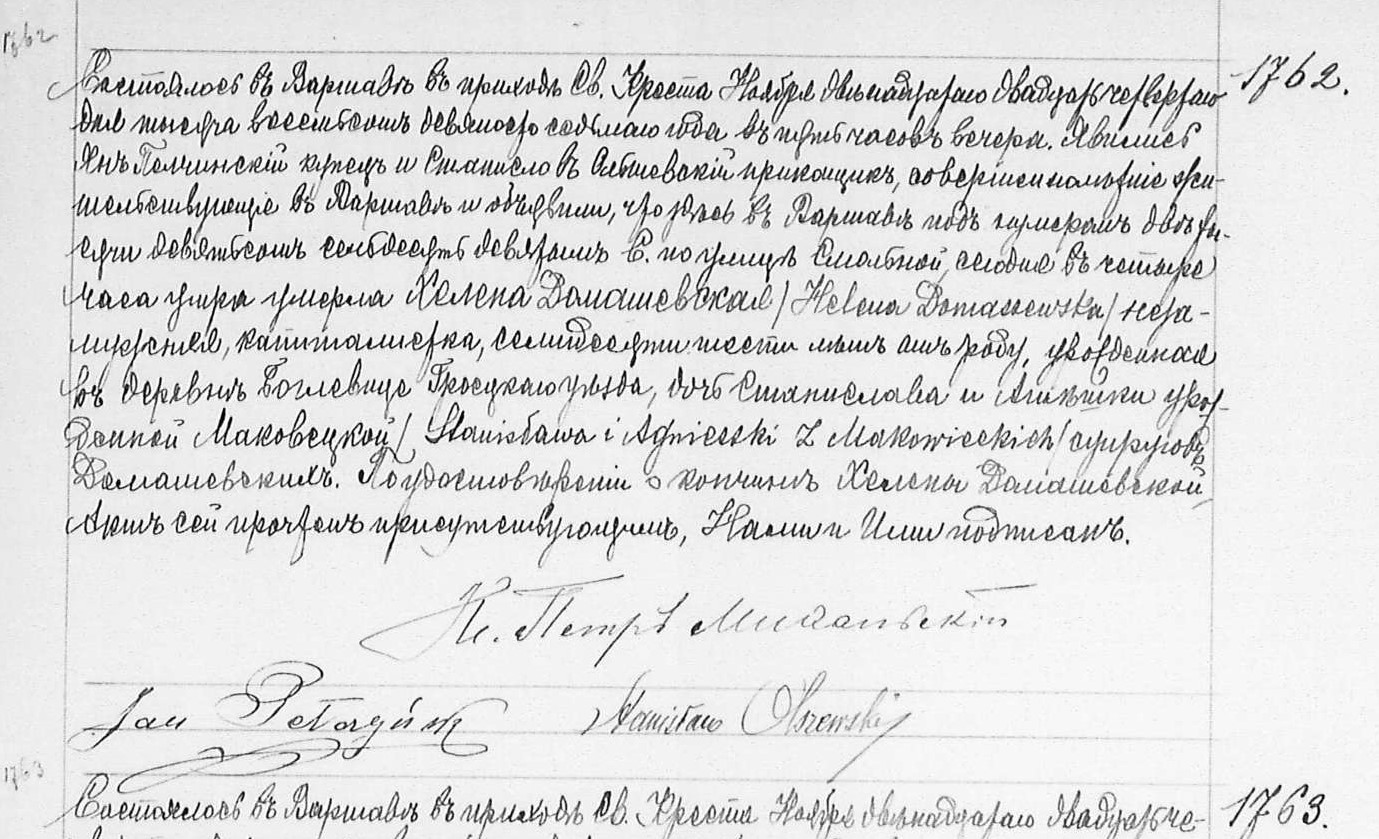 1762
Состоялось въ Варшавѣ въ приходѣ Св. Креста Ноября двѣнадцатаго двадцать четвертаго 1762.
дня тысяча восемьсотъ девяносто седьмаго года въ пять часовъ вечера. Явились
Янъ купецъ и Станиславъ Ольшевскій прикащикъ, совершеннолѣтніе жи-
тельствующіе въ Варшавѣ и объявили, что здѣсь въ Варшавѣ подъ нумеромъ двѣ ты-
сячи девятьсотъ семьдесятъ девятымъ Е. по улицѣ Смольной, сегодня въ четыре
часа утра умерла Хелена Домашевская / Helena Domaszewska / неза-
мужняя, капиталистка, семидесяти шести лѣтъ отъ роду, урожденная
въ деревнѣ Боглевице Гроецкаго уѣзда, дочь Станислава и Агнѣшки урож-
денной Маковецкой / Stanisława i Agnieszki z Makowieckich / супруговъ
Домашевскихъ. По удостовѣреніи о кончинѣ Хелены Домашевской,
Актъ сей прочтенъ присутствующимъ, Нами и Ими подписанъ.
Кс. Петръ
Jan Stanisław Olszewski
1763
Состоялось въ Варшавѣ въ приходѣ Св. Креста Ноября двѣнадцатаго двадцать че- 1763.